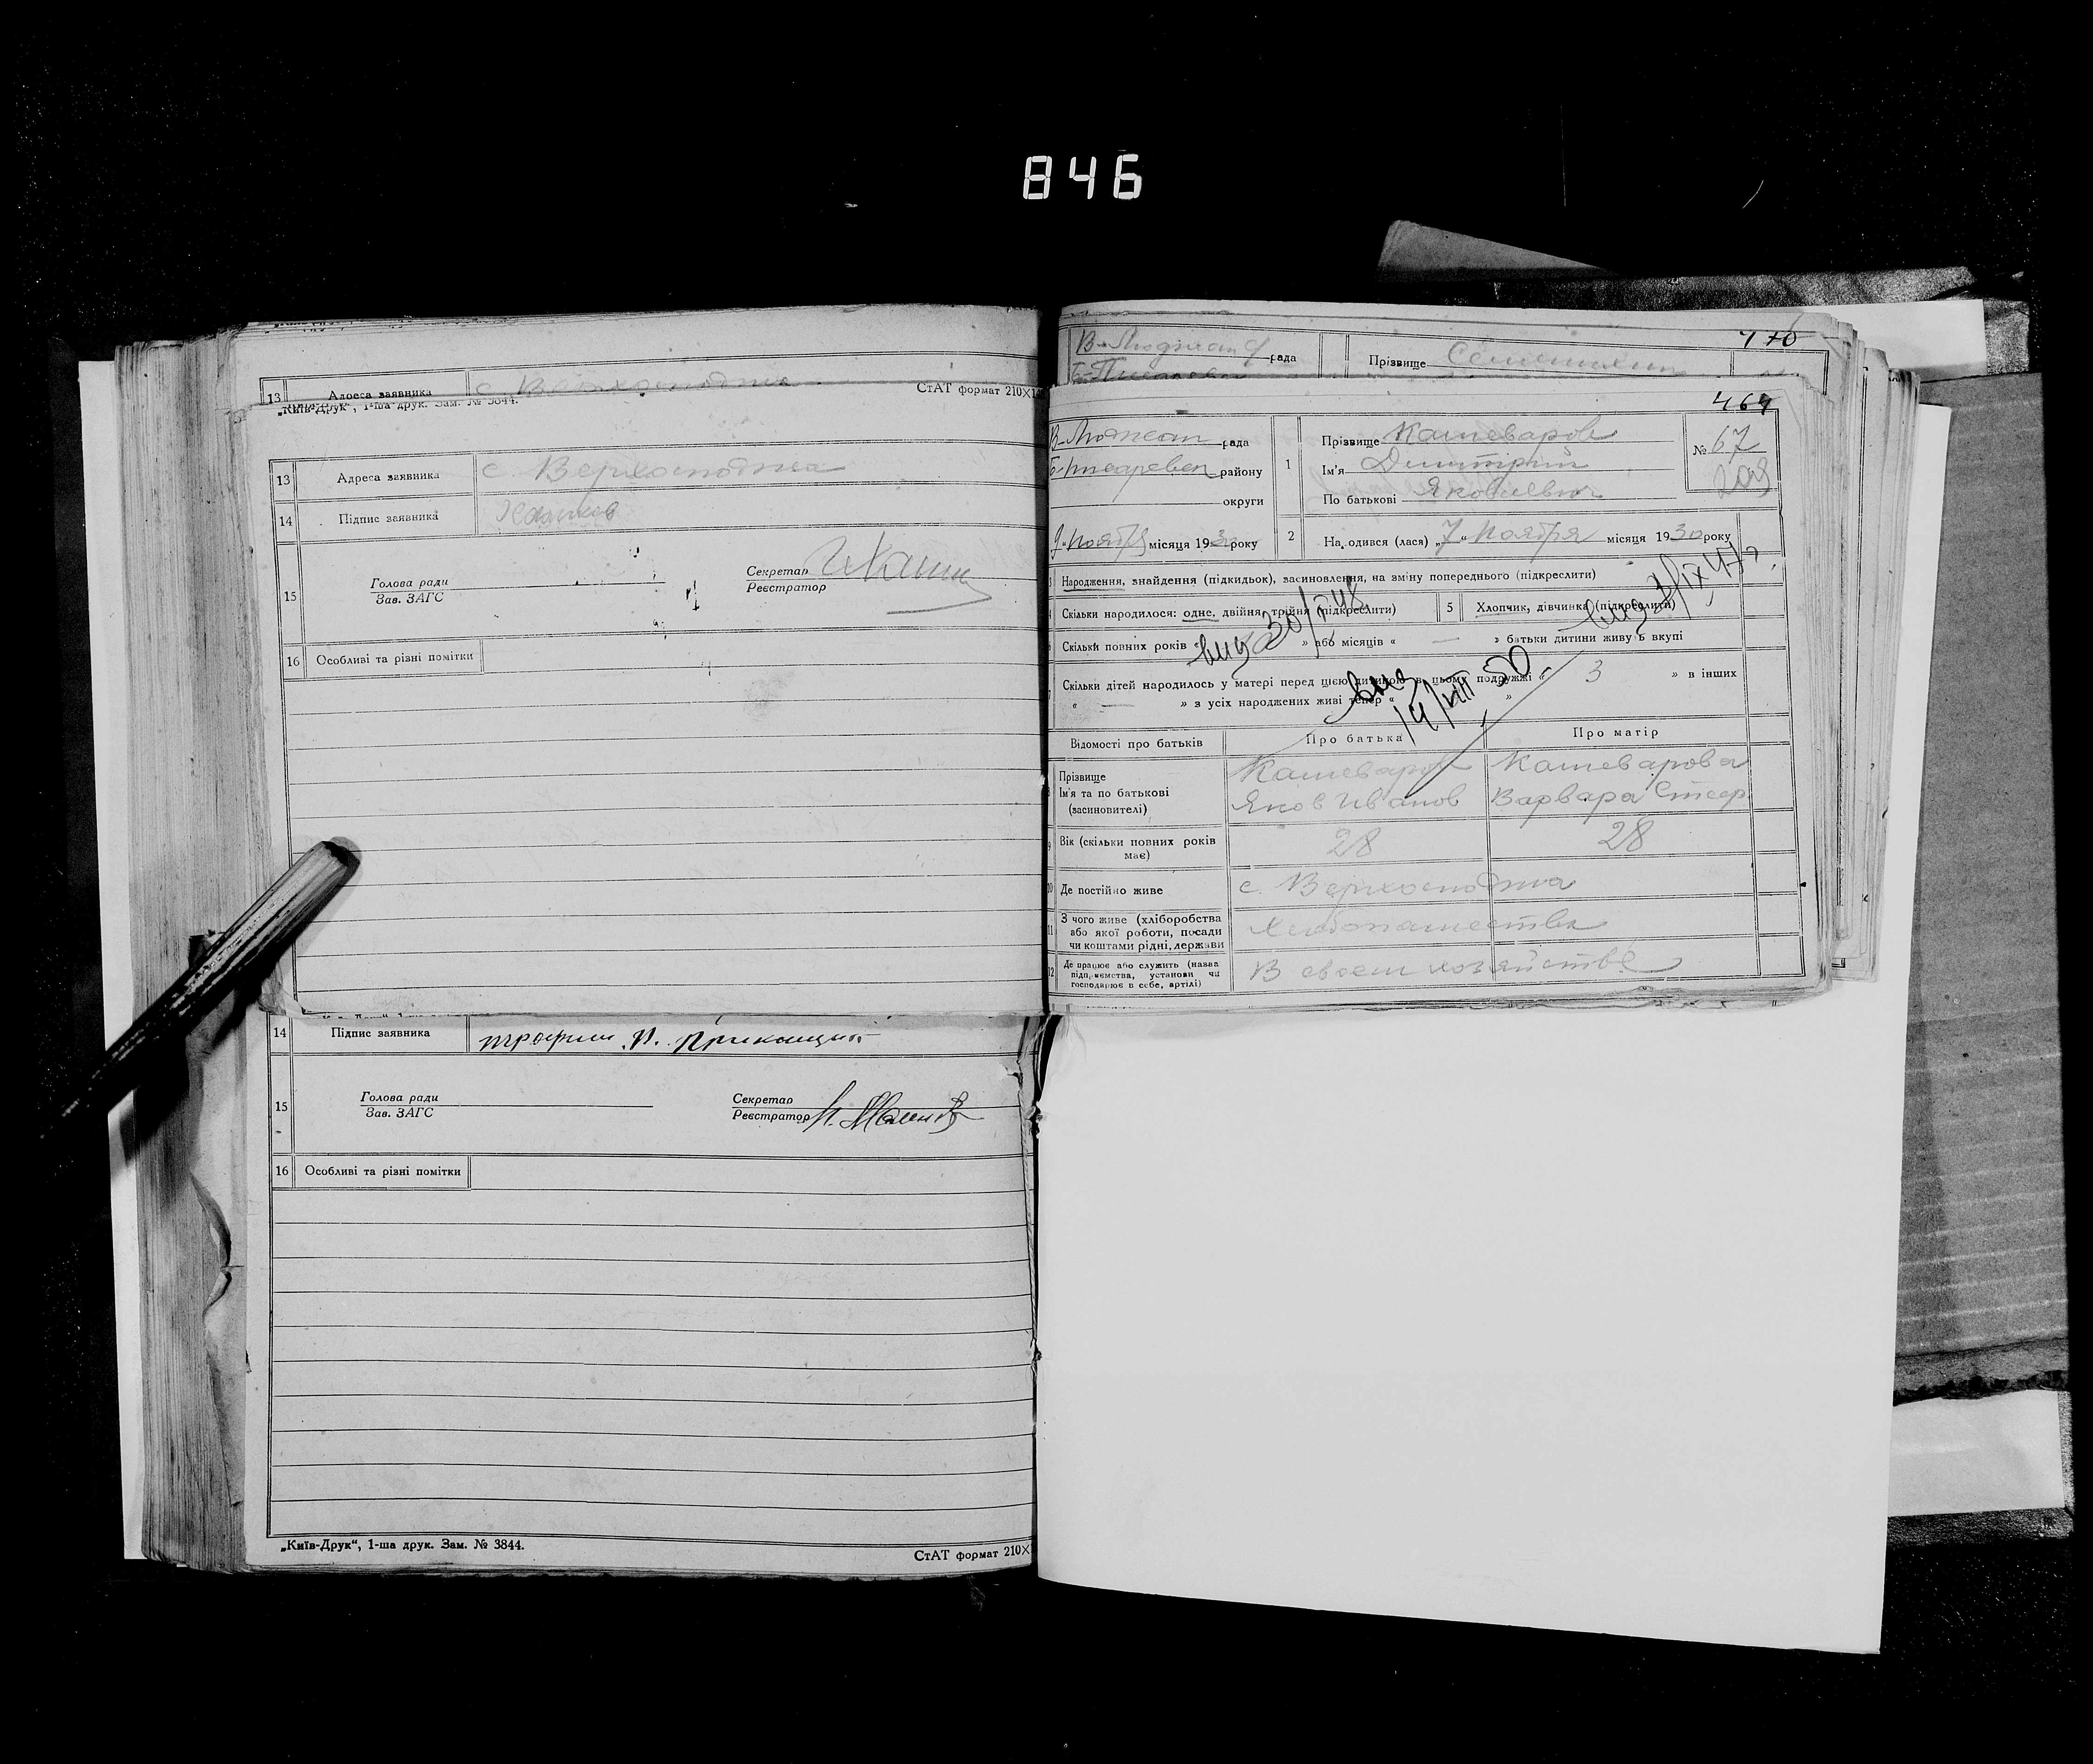 846
13 Адреса заявника с. Верхоспод
СтАТ формат 210X1
„Київ-Друк“, 1-ша друк. Зам. № 3844.
13 Адреса заявника с. Верхосподжа
14 Підпис заявника
15 Голова ради
Зав. ЗАГС
Секретар
Реєстратор
16 Особливі та різні помітки
14 Підпис заявника трофим И.
15 Голова ради
Зав. ЗАГС
Секретар
Реєстратор
16 Особливі та різні помітки
„Київ-Друк“, 1-ша друк. Зам. № 3844.
СтАТ формат 210X
470
рада Прізвище
469
рада
району
округи
1 Прізвище Кашеваров
Ім'я Димитрий
По батькові Яковлевич
№ 67
9 " Ноября місяця 1930 року
2 Народився (лася) „ 7 " Ноября місяця 1930 року
Народження, знайдення (підкидьок), засиновлення, на зміну попереднього (підкреслити)
Скільки народилося: одне, двійня, трійня (підкреслити) 5 Хлопчик, дівчинка (підкреслити)
Скільки повних років « » або місяців « — » батьки дитини живуть вкупі
Скільки дітей народилось у матері перед цією дитиною в цьому подружжі « 3 » в інших
« — » з усіх народжених живі тепер « »
Відомості про батьків Про батька Про матір
Прізвище
Ім'я та по батькові
(засиновителі)
Кашеваров
Яков Иванов
Кашеварова
Варвара
9 Вік (скільки повних років
має)
28 28
10 Де постійно живе с. Верхосподжа
11 З чого живе (хліборобства
або якої роботи, посади
чи коштами рідні, держави
Хлебопашества
12 Де працює або служить (назва
підприємства, установи чи
господарює в себе, артілі)
В своем хозяйстве